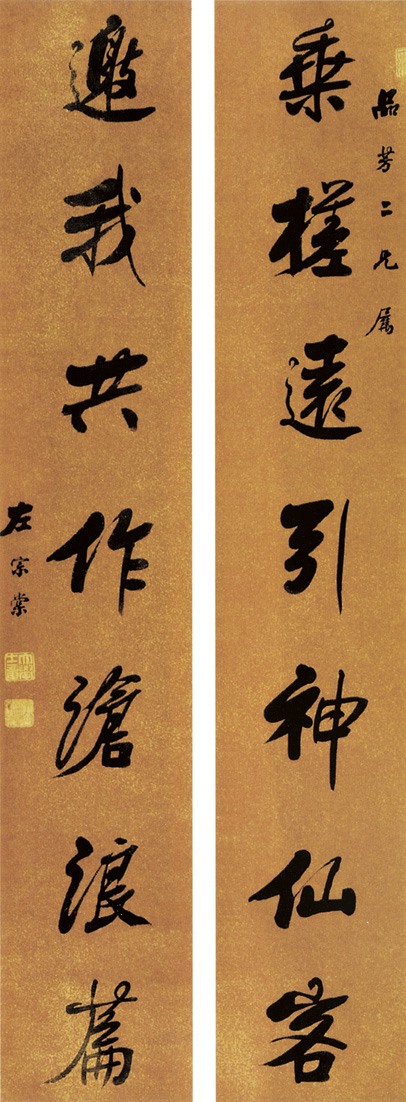 品芳二兄属
乘槎遠引神仙客
邀我共作滄浪篇
左宗棠